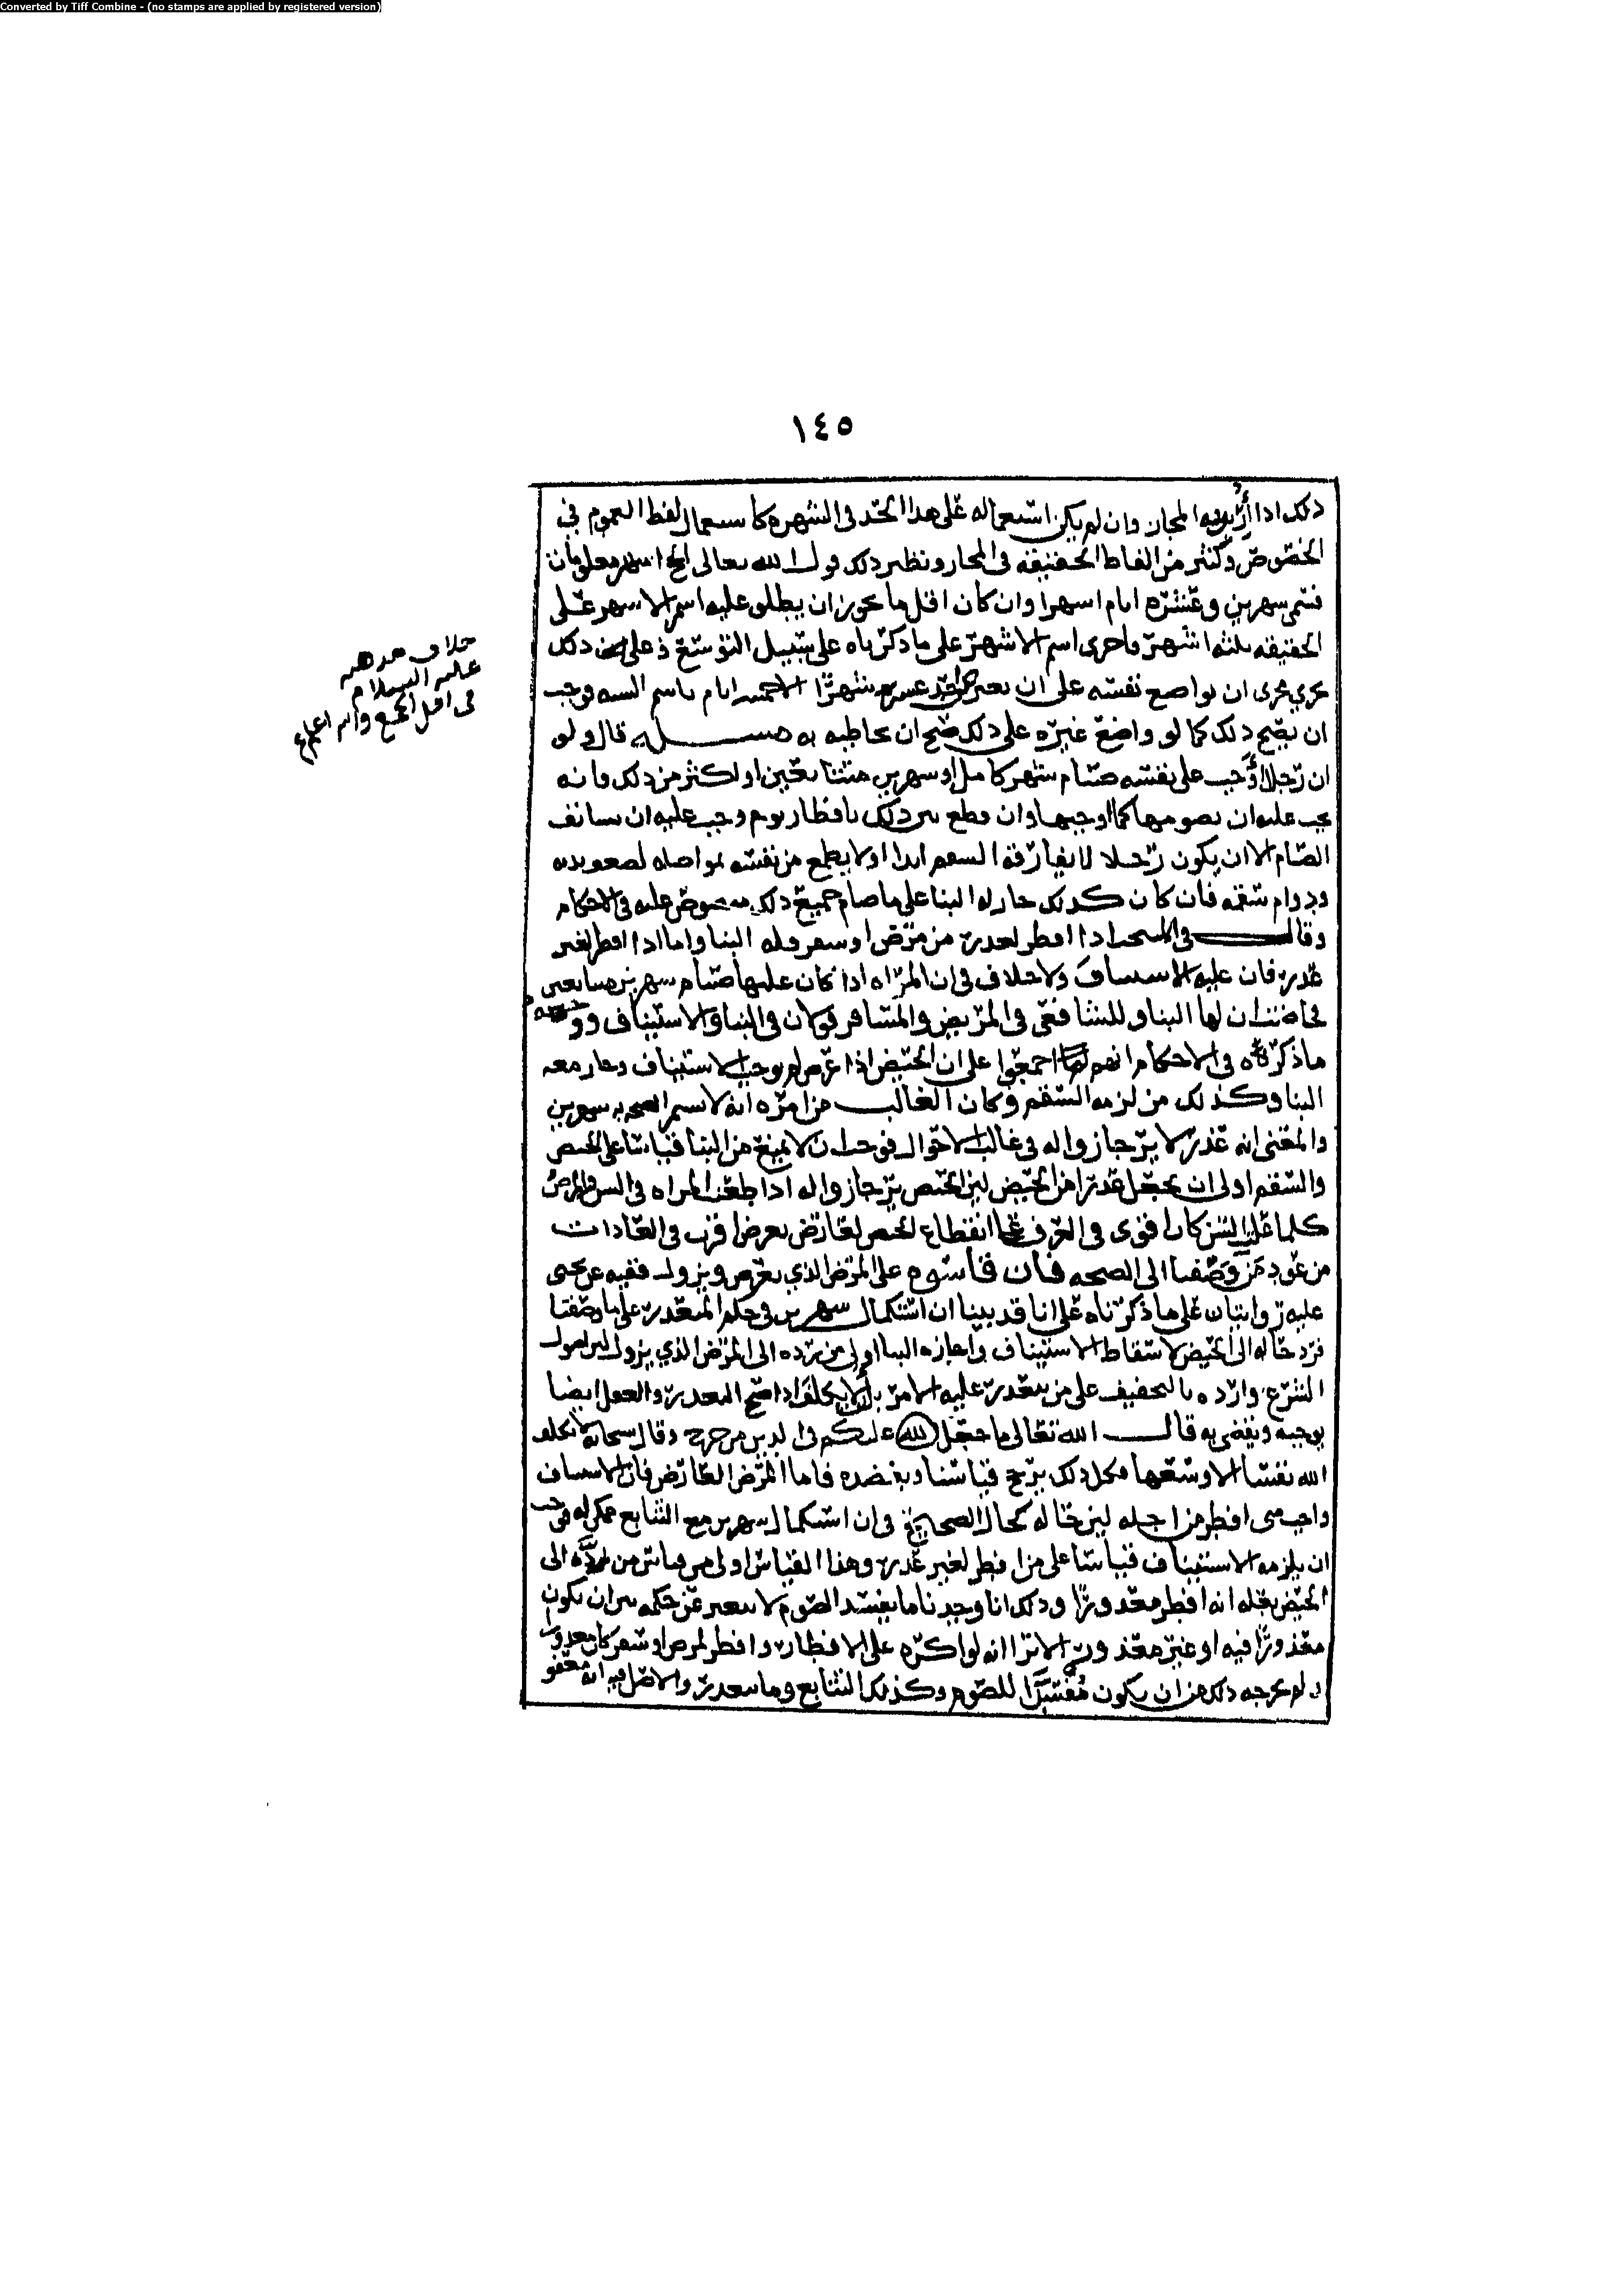 Converted by Tiff Combine - (no stamps are applied by registered version)
١٤٥
ذلك اذا اريد به المجاز وان لم يكن استعماله على هذا الحد في الشهره كاستعمال لفظ العموم في
الخصوص وكثير من الفاظ الحقيقه في المجاز ونظير ذلك قول الله تعالى الحج اشهر معلومات
فسمى شهرين وعشره ايام اشهرا وان كان اقل ما يجوز ان يطلق عليه اسم الاشهر على
الحقيقه ثلثه اشهر فاجرى اسم الاشهر على ما ذكرناه على سبيل التوسع ذ على ذلك
يجري مجرى ان يواضع نفسه على ان يعبر عن احد عشر شهرا الا خمسه ايام باسم السنه فوجب
ان يصح ذلك كما لو واضع غيره على ذلك صح ان يخاطبه به مسـله قال ولو
ان رجلا اوجب على نفسه صيام شهر كامل او شهرين متتابعين او اكثر من ذلك فانه
يجب عليه ان يصومها كما اوجبها وان قطع بين ذلك بافطار يوم وجب عليه ان يستانف
الصيام الا ان يكون رجلا لا يفارقه السقم ابدا او لا يطمع من نفسه بمواصله لضعف بدنه
ودوام سقمه فان كان كذلك جاز له البنا على ما صام جميع ذلك منصوص عليه في الاحكام
وقال في المنتخب اذا افطر لعذر من مرض او سفر فله البنا واما اذا افطر لغير
عذر فان عليه الاستيناف ولا خلاف في ان المراه اذا كان عليها صيام شهرين متتابعين
فحاضت ان لها البنا وللشافعي في المريض والمسافر قولان في البنا والاستيناف ووجه
ما ذكرناه في الاحكام انهم لما اجمعوا على ان الحيض اذا عرض لم يوجب الاستيناف وجاز معه
البنا وكذلك من لزمه السقم وكان الغالب من امره انه لا تستمر الصحه به شهرين
والمعنى انه عذر لا يرجا زواله في غالب الاحوال فوجب ان لا يمنع من البنا قياسا على الحيض
والسقم اولى ان يجعل عذرا من الحيض لان الحيض يرجا زواله اذا طعنت المراه في السن والمرض
كلما علت السن كان اقوى وفي العرف انقطاع الحيض لعارض يعرض اقرب في العادات
من عود من وصفنا الى الصحه فان قاسوه على المرض الذي يعرض ويزول ففيه
عليه على ما ذكرناه على انا قد بينا ان استكمال شهرين في حكم المتعذر على ما وصفنا
فرد حاله الى الحيض لاسقاط الاستيناف واجازه البنا اولى من رده الى المرض الذي يزول لان اصول
الشرع وارده بالتخفيف على من يتعذر عليه الامر بان لا يكلف اذا صح التعذر والعقل ايضا
يوجبه ويقضي به قال الله تعالى ما جعل الله عليكم في الدين من حرج وقال سبحانه لا يكلف
الله نفسا الا وسعها فكل ذلك يرجح قياسنا ويعضده فاما المرض العارض فان الاستيناف
واجب متى افطر من اجله لان حاله كحال الصحيح في ان استكمال شهرين مع التتابع ممكن له فوجب
ان يلزمه الاستيناف قياسا على من افطر لغير عذر وهذا القياس اولى من قياس من رده الى
الحيض بعله انه افطر معذورا وذلك انا وجدنا ما يفسد الصوم لا يتغير عن حكمه بين ان يكون
معذورا فيه او غير معذور الا ترا انه لو اكره على الافطار وافطر لمرض او سفر كان معذورا
ولم يخرجه ذلك من ان يكون مفسدا للصوم وكذلك التتابع وما
خلاف مذهبه
عليه السلام
في اقل الجمع والله اعلم